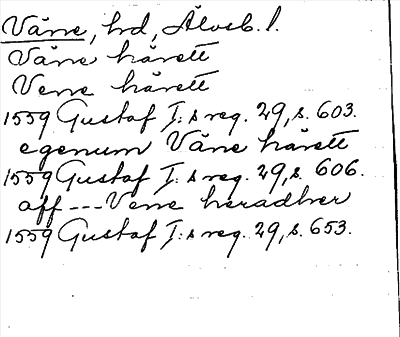 Väne, hd, Älvsb. l.
Väne härett
Vene härett
1559 Gustaf I:s reg. 29, s. 603.
egenum Väne härett
1559 Gustaf I:s reg. 29, s. 606.
aff --- Vene heradher
1559 Gustaf I:s reg. 29, s. 653.